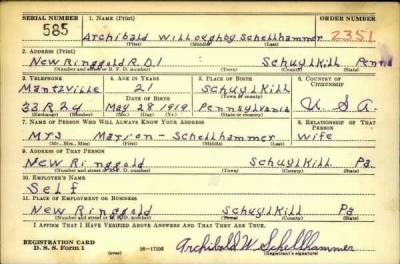 SERIAL NUMBER 1. NAME (Print)
585 Archibald Willoughby Schellhammer 2351
(First) (Middle) (Last)
2. ADDRESS (Print)
New Ringgold R.D.1 Schuylkill Penna
(Number and street or R. F. D. number) (Town) (County) (State)
3. TELEPHONE 4. AGE IN YEARS 5. PLACE OF BIRTH 6. COUNTRY OF CITIZENSHIP
Mantzville 21 Schuylkill
(Exchange) DATE OF BIRTH (Town or county)
33.R24 May 28 1919 Pennsylvania U.S.A.
(Number) (Mo.) (Day) (Yr.) (State or country)
7. NAME OF PERSON WHO WILL ALWAYS KNOW YOUR ADDRESS 8. RELATIONSHIP OF THAT PERSON
Mrs Marion - Schellhammer Wife
(Mr., Mrs., Miss) (First) (Middle) (Last)
9. ADDRESS OF THAT PERSON
New Ringgold Schuylkill Pa.
(Number and street or R. F. D. number) (Town) (County) (State)
10. EMPLOYER'S NAME
Self
11. PLACE OF EMPLOYMENT OR BUSINESS
New Ringgold Schuylkill Pa
(Number and street or R. F. D. number) (Town) (County) (State)
I AFFIRM THAT I HAVE VERIFIED ABOVE ANSWERS AND THAT THEY ARE TRUE.
REGISTRATION CARD
D. S. S. Form 1 16-17105 Archibald W. Schellhammer
(Registrant's signature)